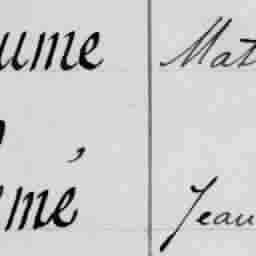 ume Mat
,
mé Jean